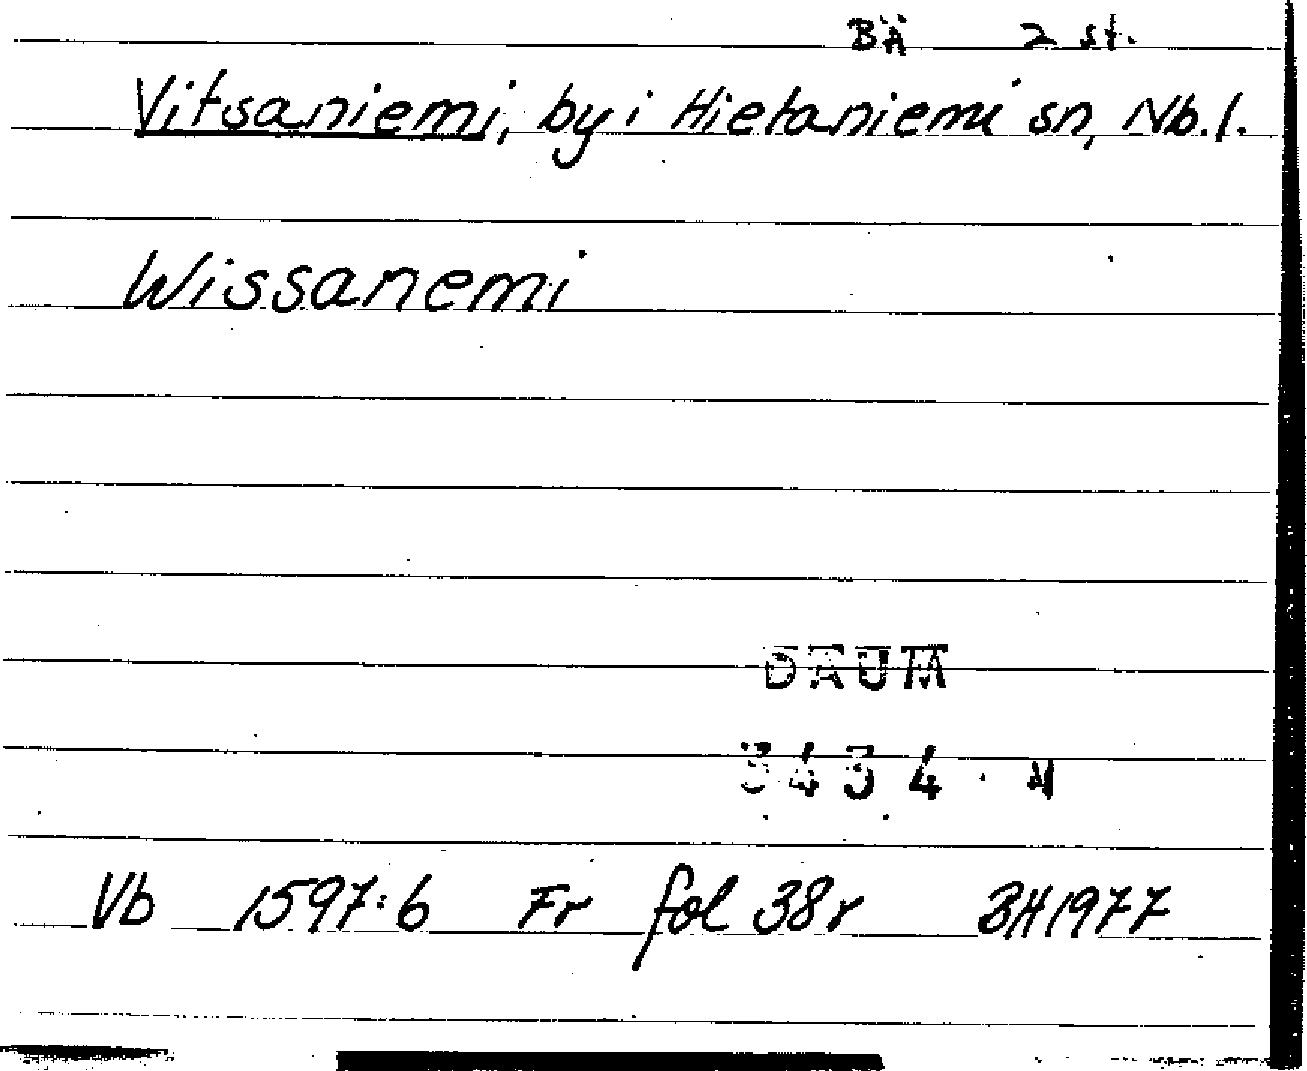 BÄ 2 st.
Vitsaniemi, by i Hietaniemi sn, Nb.l.
Wissanemi
DAUM
3434. H
Vb 1597:6 Fr fol 38r BH1977